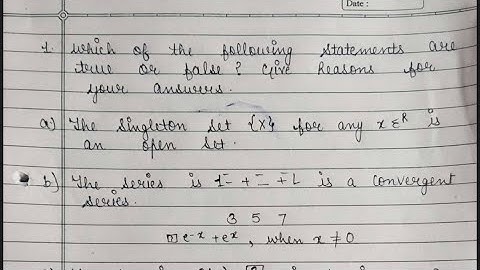 Date :
1. which of the following statements are
true or false ? Give Reasons for
your answers.
a) The singleton set {x} for any x ε R is
an open set.
b) The series is 1- + - + 1 is a convergent
series.
3 5 7
e-x + ex, when x ≠ 0